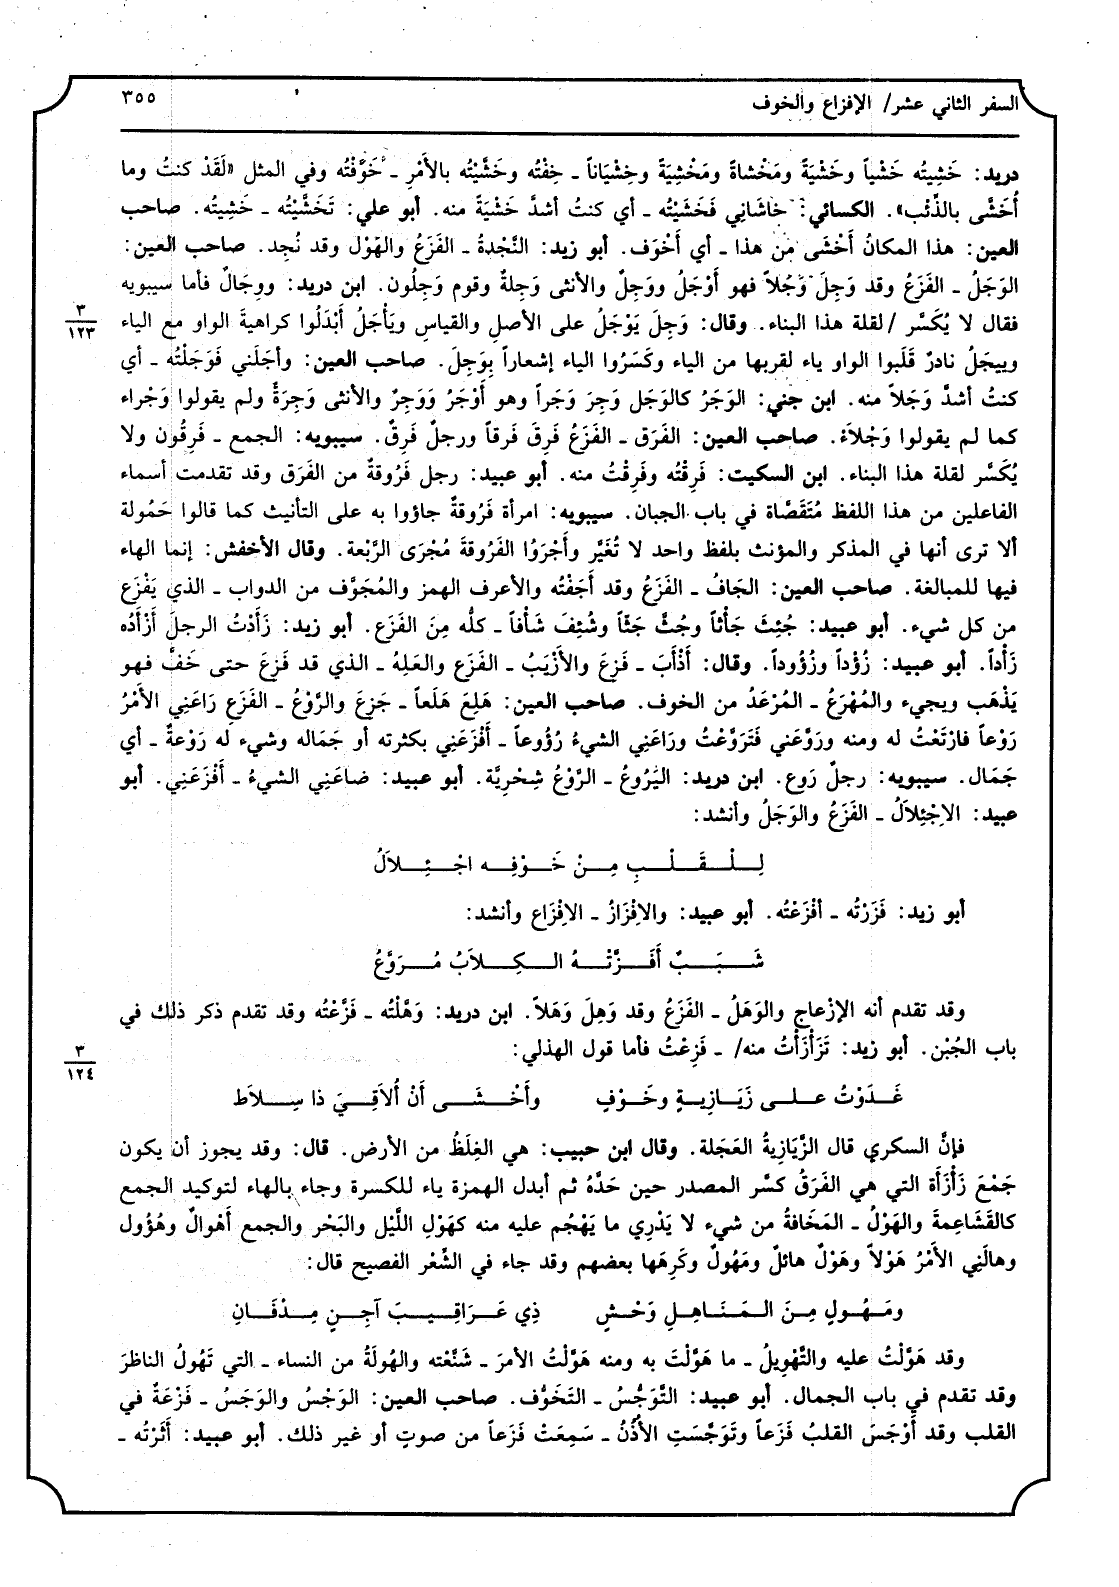 السفر الثاني عشر/ الإفزاع والخوف
٣٥٥
دريد: خَشِيتُه خَشْياً وخَشْيَةً ومَخْشاةً ومَخْشِيَةً وخِشْيَاناً ـ خِفْتُه وخَشَّيْتُه بالأَمْرِ ـ خَوَّفْتُه وفي المثل «لَقَدْ كنتُ وما
أُخَشَّى بالذِّئْب». الكسائي: خاشَاني فَخَشَيْتُه ـ أي كنتُ أشدَّ خَشْيَةً منه. أبو علي: تَخَشَّيْتُه ـ خَشِيتُه. صاحب
العين: هذا المكانُ أَخْشَى مِن هذا ـ أي أَخْوَف. أبو زيد: النَّجْدةُ ـ الفَزَعُ والهَوْل وقد نُجِد. صاحب العين:
الوَجَلُ ـ الفَزَعُ وقد وَجِلَ وَجَلاً فهو أَوْجَلُ ووَجِلٌ والأنثى وَجِلةٌ وقوم وَجِلُون. ابن دريد: ووِجَالٌ فأما سيبويه
فقال لا يُكَسَّر /لقلة هذا البناء. وقال: وَجِلَ يَوْجَلُ على الأصلِ والقياسِ ويَأْجَلُ أَبْدَلُوا كراهيةَ الواو مع الياء
٣
١٢٣
وييجَلُ نادرٌ قَلَبوا الواو ياء لقربها من الياء وكَسَرُوا الياء إشعاراً بِوَجِلَ. صاحب العين: وأجَلَني فَوَجَلْتُه ـ أي
كنتُ أشدَّ وَجَلاً منه. ابن جني: الوَجَرُ كالوَجَل وَجِرَ وَجَراً وهو أَوْجَرُ وَوَجِرٌ والأنثى وَجِرَةٌ ولم يقولوا وَجْراء
كما لم يقولوا وَجْلاَءُ. صاحب العين: الفَرَق ـ الفَزَعُ فَرِقَ فَرقاً ورجلٌ فَرِقٌ. سيبويه: الجمع ـ فَرِقُون ولا
يُكَسَّر لقلة هذا البناء. ابن السكيت: فَرِقْتُه وفَرِقْتُ منه. أبو عبيد: رجل فَرُوقةٌ من الفَرَق وقد تقدمت أسماء
الفاعلين من هذا اللفظ مُتَقَصَّاة في باب الجبان. سيبويه: امرأة فَرُوقةٌ جاؤوا به على التأنيث كما قالوا حَمُولة
ألا ترى أنها في المذكر والمؤنث بلفظ واحد لا تُغَيَّر وأَجْرَوُا الفَرُوقةَ مُجْرَى الرَّبْعة. وقال الأخفش: إنما الهاء
فيها للمبالغة. صاحب العين: الجَافُ ـ الفَزَعُ وقد أَجَفْتُه والأعرف الهمز والمُجَوَّف من الدواب ـ الذي يَفْزَع
من كل شيء. أبو عبيد: جُئِثَ جَأْثاً وجُثَّ جَثّاً وشُئِفَ شَأْفاً ـ كلُّه مِنَ الفَزَع. أبو زيد: زَأَدْتُ الرجلَ أَزْأَدُه
زَأْداً. أبو عبيد: زُؤْداً وزُؤُوداً. وقال: أَذْأَبَ ـ فَزِعَ والأَزْيَبُ ـ الفَزَع والعَلِهُ ـ الذي قد فَزِعَ حتى خَفَّ فهو
يَذْهَب ويجيء والمُهْرَعُ ـ المُرْعَدُ من الخوف. صاحب العين: هَلِعَ هَلَعاً ـ جَزِعَ والرَّوْعُ ـ الفَزَع رَاعَنِي الأَمْرُ
رَوْعاً فارْتَعْتُ له ومنه ورَوَّعَني فَتَرَوَّعْتُ ورَاعَنِي الشيءُ رُؤُوعاً ـ أَفْزَعَنِي بكثرته أو جَمَاله وشيء له رَوْعةٌ ـ أي
جَمَال. سيبويه: رجلٌ رَوع. ابن دريد: اليَرُوعُ ـ الرَّوْعُ شِحْرِيَّة. أبو عبيد: ضاعَنِي الشيءُ ـ أَفْزَعَنِي. أبو
عبيد: الاِجْئِلاَلُ ـ الفَزَعُ والوَجَلُ وأنشد:
لِلْقَلْبِ مِنْ خَوْفِه اجْئِلالُ
أبو زيد: فَزَرْتُه ـ أفْزَعْتُه. أبو عبيد: والاِفْزَازُ ـ الاِفْزَاع وأنشد:
شَبَبٌ أَفَزَّتْهُ الكِلاَبُ مُرَوَّعُ
وقد تقدم أنه الإزْعاج والوَهَلُ ـ الفَزَعُ وقد وَهِلَ وَهَلاً. ابن دريد: وَهَّلْتُه ـ فَزَّعْتُه وقد تقدم ذكر ذلك في
باب الجُبْن. أبو زيد: تَزَأْزَأْتُ منه/ ـ فَزِعْتُ فأما قول الهذلي:
٣
١٢٤
غَدَوْتُ على زَيَازِيةٍ وخَوْفٍ    وأَخْشَى أنْ أُلاَقِيَ ذا سِلاَط
فإنَّ السكري قال الزَّيَازِيةُ العَجَلة. وقال ابن حبيب: هي الغِلَظُ من الأرض. قال: وقد يجوز أن يكون
جَمْعَ زَأْزَأَة التي هي الفَرَقُ كسَّر المصدر حين حَدَّهُ ثم أبدل الهمزة ياء للكسرة وجاء بالهاء لتوكيد الجمع
كالقَشَاعِمةَ والهَوْلُ ـ المَخَافةُ من شيء لا يَدْرِي ما يَهْجُم عليه منه كهَوْلِ اللَّيْل والبَحْر والجمع أَهْوالٌ وهُؤُول
وهالَنِي الأَمْرُ هَوْلاً وهَوْلٌ هائلٌ ومَهُولٌ وكَرِهَها بعضهم وقد جاء في الشِّعْر الفصيح قال:
ومَهُولٍ مِنَ المَنَاهِلِ وَحْشٍ    ذِي عَرَاقِيبَ آجِنٍ مِدْفَانِ
وقد هَوَّلْتُ عليه والتَّهْوِيلُ ـ ما هَوَّلْتَ به ومنه هَوَّلْتُ الأمرَ ـ شَنَّعْته والهُولَةُ من النساء ـ التي تَهُولُ الناظرَ
وقد تقدم في باب الجمال. أبو عبيد: التَّوَجُّسُ ـ التَخَوُّف. صاحب العين: الوَجْسُ والوَجَسُ ـ فَزْعَةٌ في
القلب وقد أَوْجَسَ القلبُ فَزَعاً وتَوَجَّسَتِ الأُذُنُ ـ سَمِعَتْ فَزَعاً من صوتٍ أو غير ذلك. أبو عبيد: أَتَرْتُه ـ